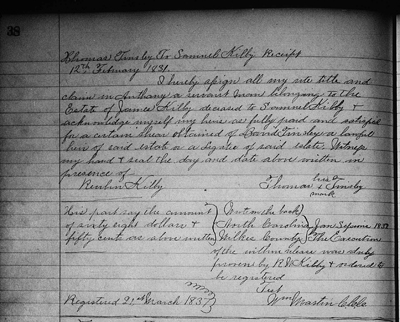 38
Thomas Tinsley To Samuel Kilby Receipt
12th February 1831.
I hereby assign all my rite title and
claim in Anthony a servant man belonging to the
Estate of James Kilby deceased to Samuel Kilby &
acknowledge myself my heirs as fully paid and satisfied
for a certain obtained of David Tinsley a lawful
heir of said estate a a degree of said estate. Witness
my hand & seal the day and date above written in
presence of
Reubin Kilby Thomas his x mark Tinsley
his part say the amount
of sixty eight dollars &
fifty cents as above written
(West on the back)
North Carolina Jan Sessions 1837
Wilkes County The Execution
of the within release was duly
proven by R. W. Kilby & ordered to
be registered
Test
Registered 21st March 1837 Wm Martin C.C.C.